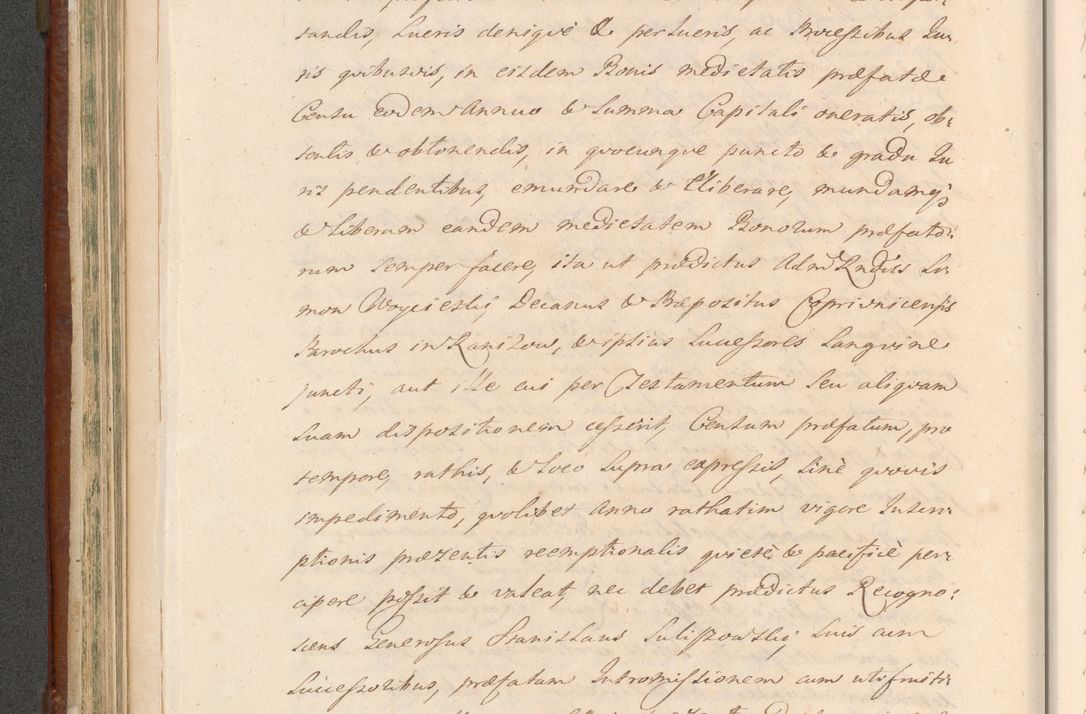 sandis, Lucris denique & perlucris, ac Processibus Ju-
ris quibusvis, in eisdem Bonis medietatis præfatæ
Censu eodem Annuo & Summa Capitali oneratis, ob-
tentis & obtonendis, in quocunque puncto & gradu Ju
ris pendentibus, emundare & Eliberare, mundamq́3
& Liberam eandem medietatem Bonorum præfato-
rum semper facere, ita ut prædictus Adm Rndus Si-
mon Woycieski Decanus & Præpositus Coprivnicensis
Parochus in Ranizow, & ipsius Successores Sangvine
juncti, aut ille cui per Testamentum seu aliquam
suam dispositionem cesserit, Censum præfatum, pro
tempore, rathis, & Loco supra expressis, sinè quovis
impedimento, quolibet Anno rathatim vigore Inscri-
ptionis præzentis reemptionalis quietè & pacificè per-
cipere possit & valeat, nec debet prædictus Recogno:
scens Generosus Stanislaus Suliszowski, suis cum
Successoribus, præfatam Intromissionem cum utifruiti-